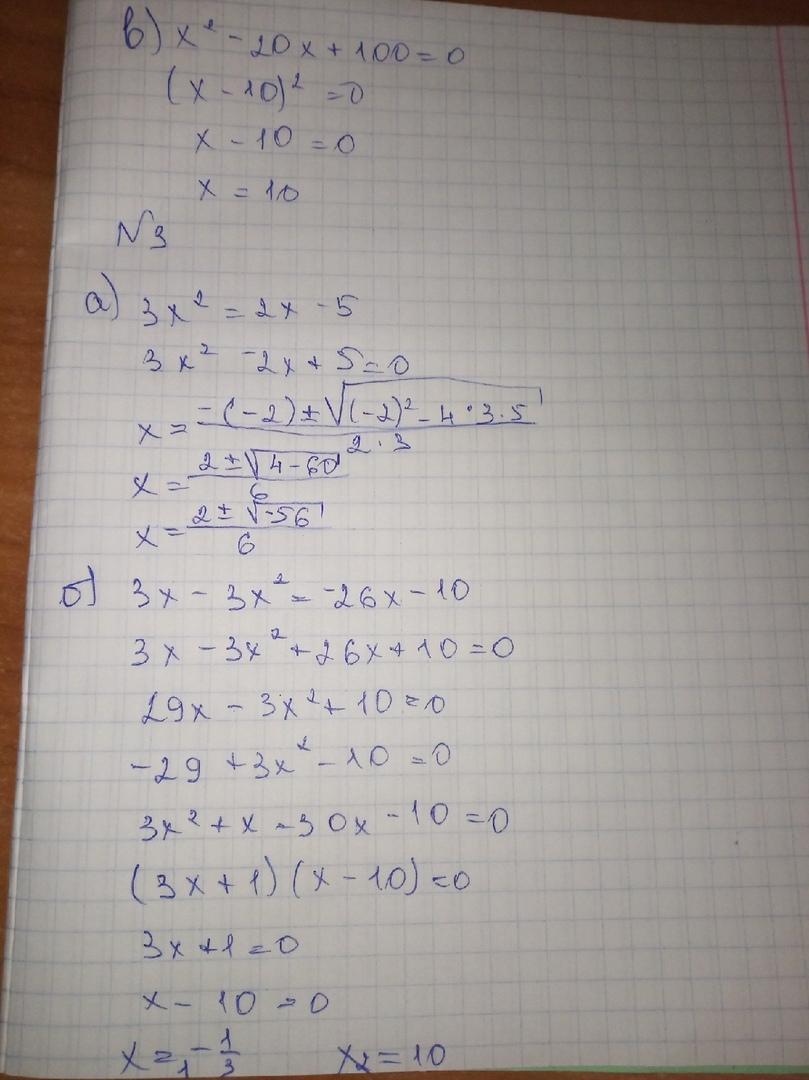 в) x² - 20x + 100 = 0
(x - 10)² = 0
x - 10 = 0
x = 10
N3
а) 3x² = 2x - 5
3x² - 2x + 5 = 0
x = (-(-2) ± √((-2)² - 4 · 3 · 5)) / (2 · 3)
x = (2 ± √(4 - 60)) / 6
x = (2 ± √(-56)) / 6
б) 3x - 3x² = -26x - 10
3x - 3x² + 26x + 10 = 0
29x - 3x² + 10 = 0
-29 + 3x² - 10 = 0
3x² + x - 30x - 10 = 0
(3x + 1)(x - 10) = 0
3x + 1 = 0
x - 10 = 0
x₁ = -1/3 x₂ = 10